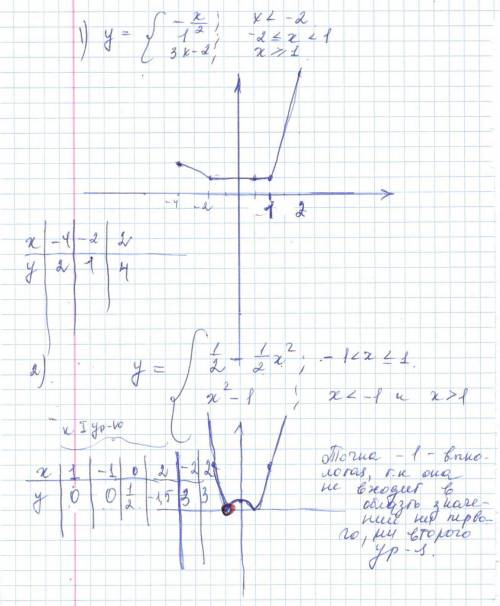 1) y = { -x/2; x < -2
1; -2 ≤ x < 1
3x-2; x ≥ 1
-4 -2 -1 1 2
x | -4 | -2 | 2
y | 2 | 1 | 4
2) y = { 1/2 - 1/2x²; -1 < x ≤ 1
x² - 1; x < -1 и x > 1
к I ур-ю
x | 1 | -1 | 0 | 2 | -2 | 2
y | 0 | 0 | 1/2 | -1,5 | 3 | 3
Точка -1 - выко-
лотая, т.к она
не входит в
область значе-
ний ни перво-
го, ни второго
ур-я.